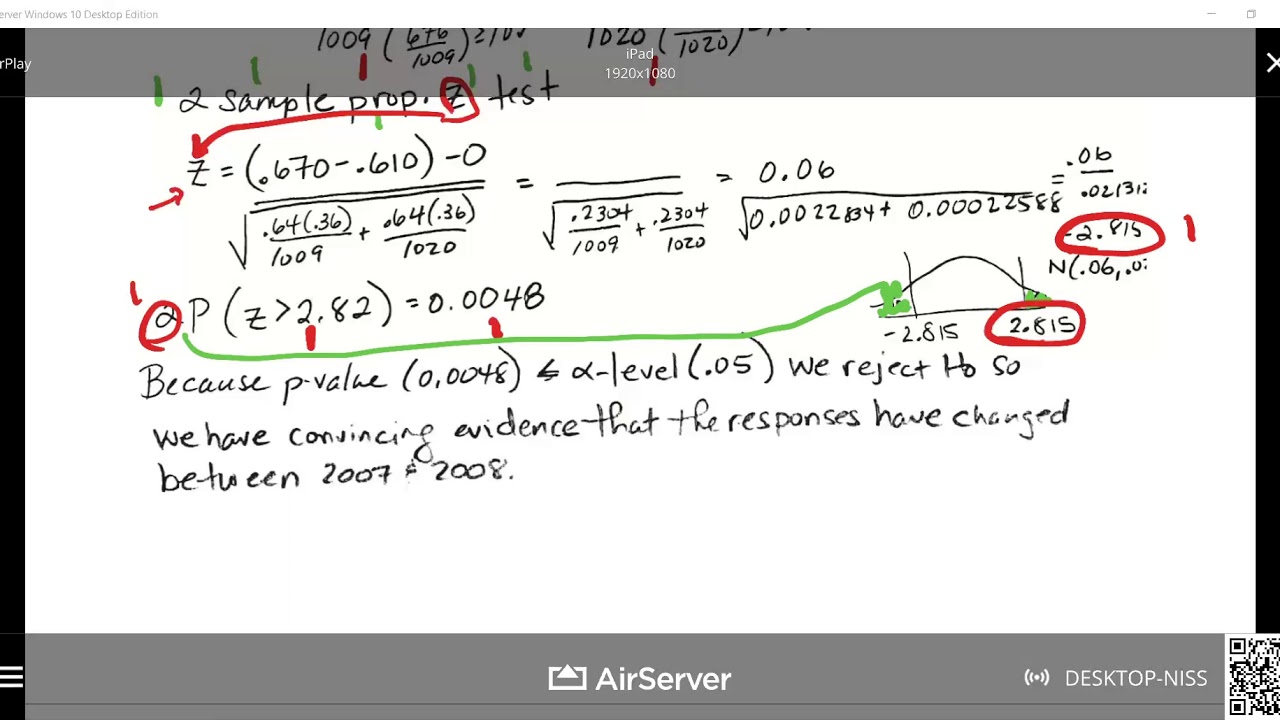 erver Windows 10 Desktop Edition
rPlay
iPad
1920x1080
1009 (676/1009) 1020 ( /1020)
2 sample prop. Z test
Z = (.670-.610) -0 / √(.64(.36)/1009 + .64(.36)/1020) = / √(.2304/1009 + .2304/1020) = 0.06 / √(0.0022834+ 0.00022588) = .06/.02131
-2.815
N(.06,.0
2P (Z>2.82) = 0.0048
-2.815 2.815
Because p-value (0.0048) ≤ α-level (.05) we reject Ho so
we have convincing evidence that the responses have changed
between 2007 & 2008.
AirServer
DESKTOP-NISS